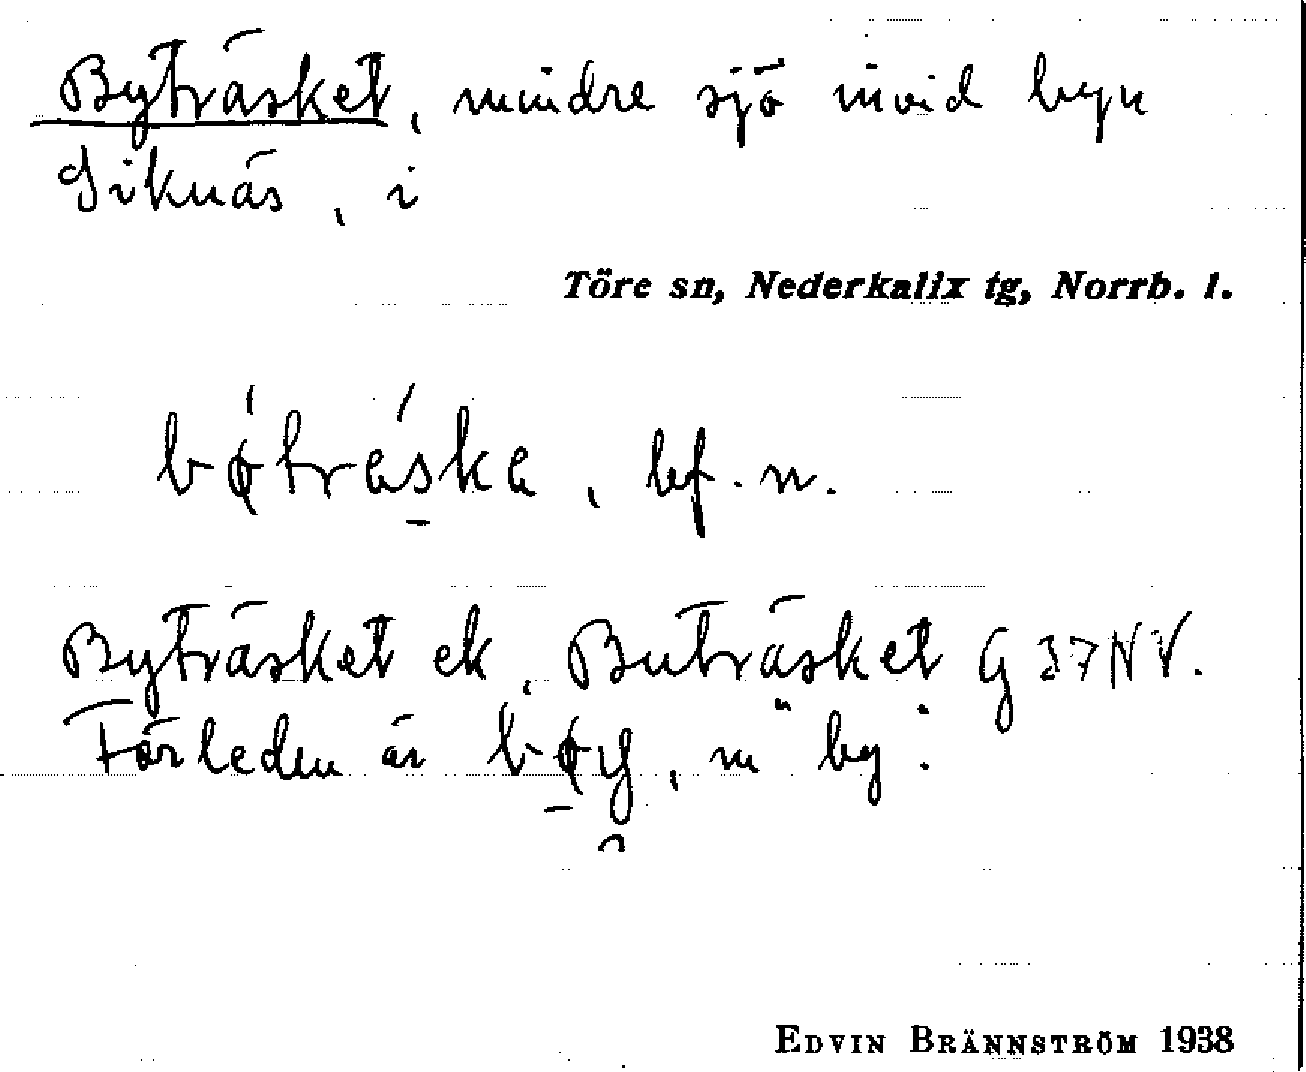 Byträsket, mindre sjö invid byn
Siknäs, i
Töre sn, Nederkalix tg, Norrb. l.
bø̍tre̍ska, bf. n.
Byträsket ek, Buträsket G 37 NV.
Förleden är bøy, m "by".
EDVIN BRÄNNSTRÖM 1938